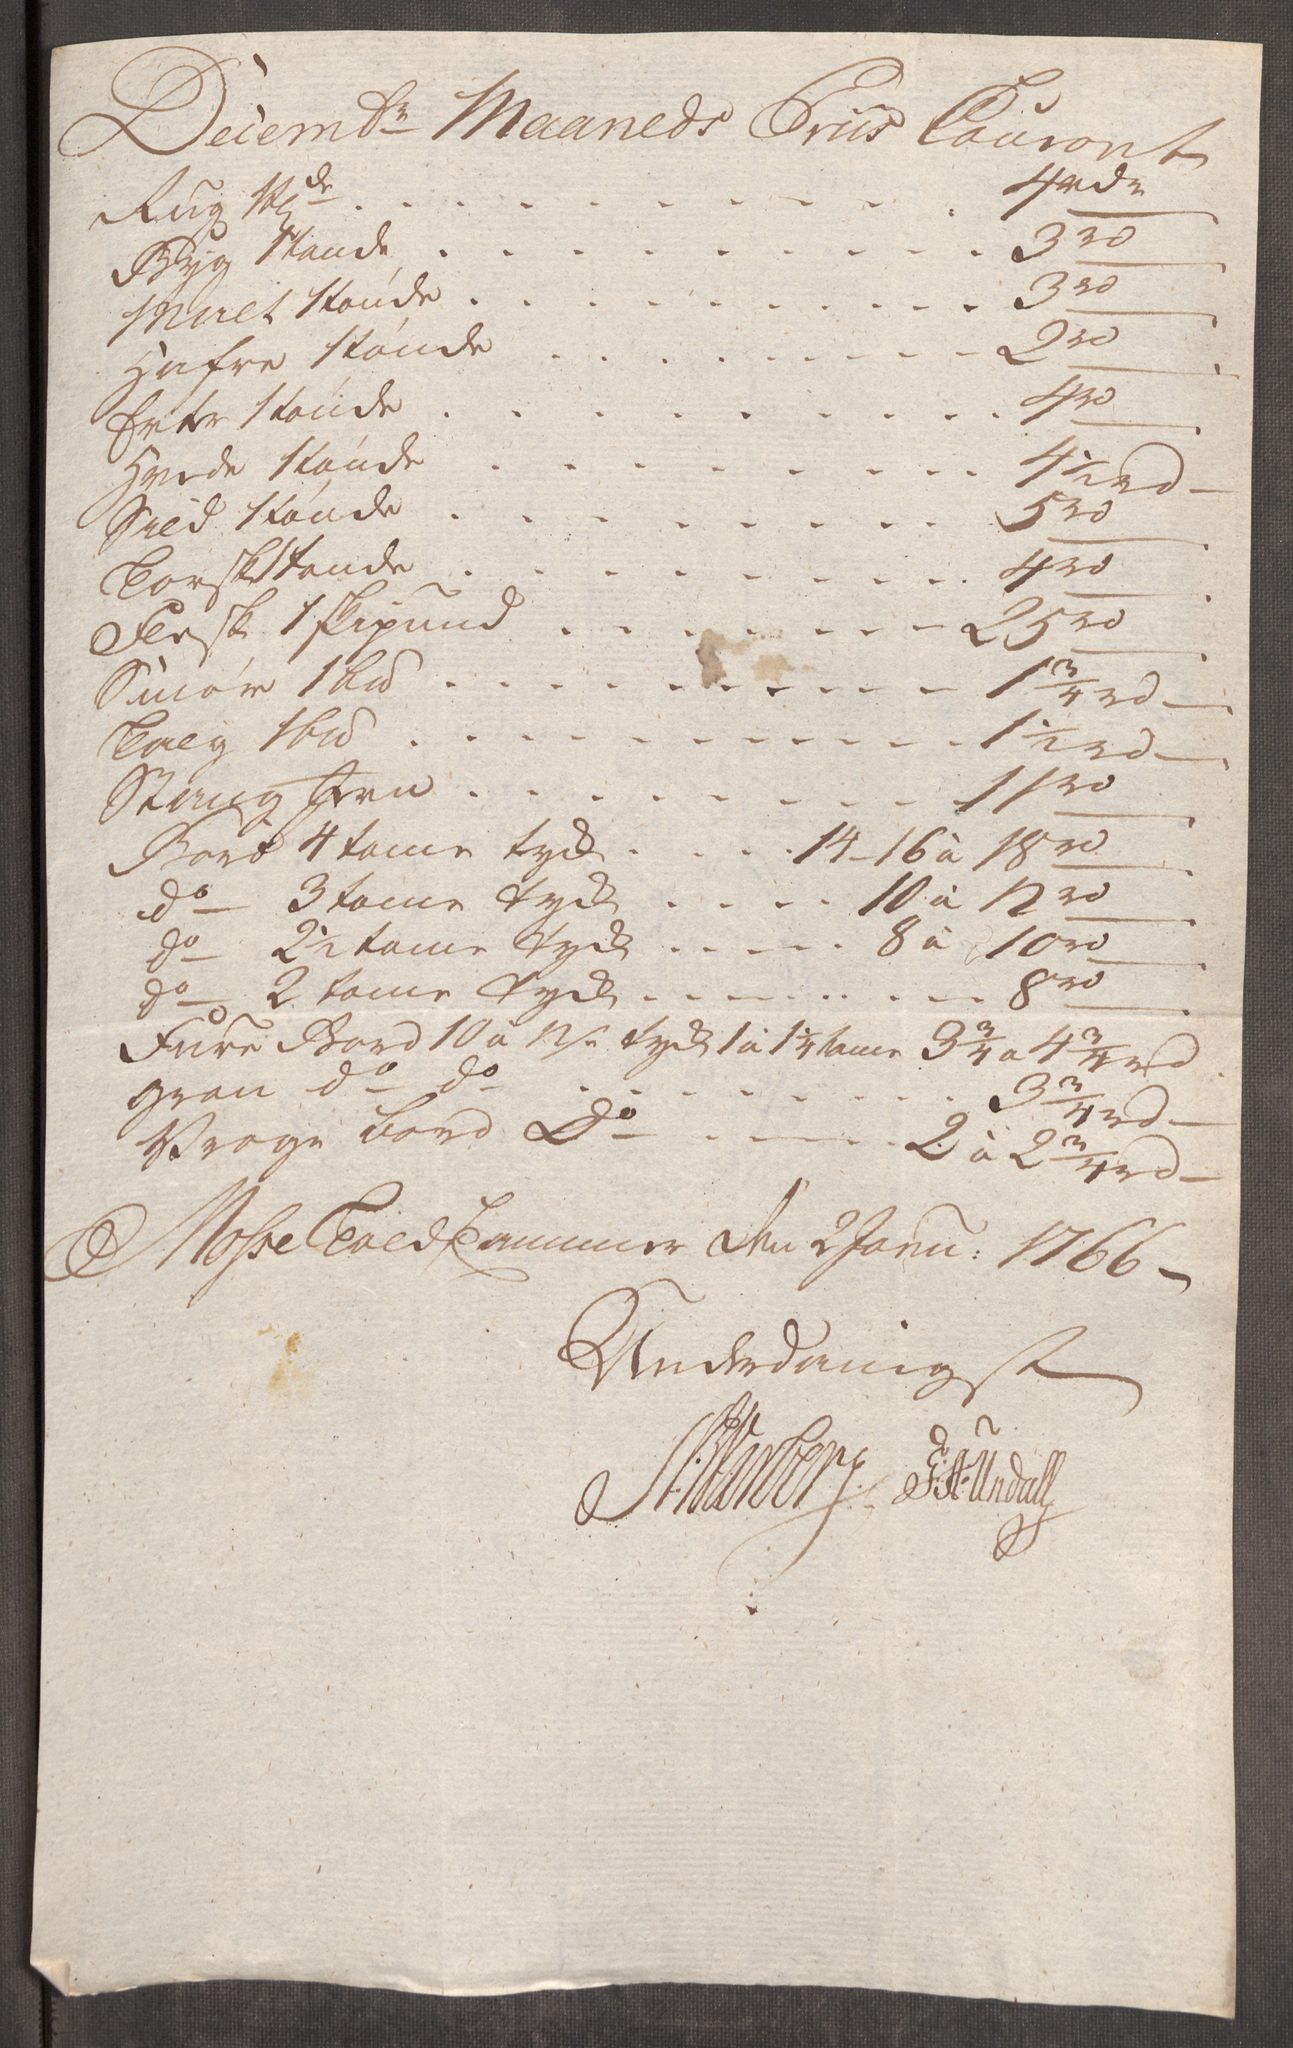 Decembr Maaneds Priis Courant
Rug 1 tde . . . . . . . . . . 4 rdr
Byg 1 tønde . . . . . . . . . 3 rd
Malt 1 tønde . . . . . . . . . 3 rd
Hafre 1 tønde . . . . . . . . 2 rd
Erter 1 tønde . . . . . . . . 4 rd
Hvede 1 tønde . . . . . . . . 4 1/2 rd
Sild 1 tønde . . . . . . . . 5 rd
Torsk 1 tønde . . . . . . . . 4 rd
Flesk 1 skipund . . . . . . . 25 rd
Smør 1 bd . . . . . . . . . . 1 3/4 rd
Talg 1 bd . . . . . . . . . . 1 1/2 rd
Stang Jern . . . . . . . . 11 rd
Bord 4 tome tyk . . . . 14 - 16 à 18 rd
do 3 tome tyk . . . . 10 à 12 rd
do 2 1/2 tome tyk . . . . . 8 à 10 rd
do 2 tome tyk . . . . . . . . 8 rd
Fure Bord 10 à 12 f. tyk 1 à 1 1/4 tome 3 3/4 a 4 3/4 rd
gran do do . . . . . . . . 3 3/4 rd
Vrage bord Do . . . . . 2 à 2 3/4 rd
Mosse Told Cammer den 2 Janu: 1766
Underdanigst
F: A: Undall